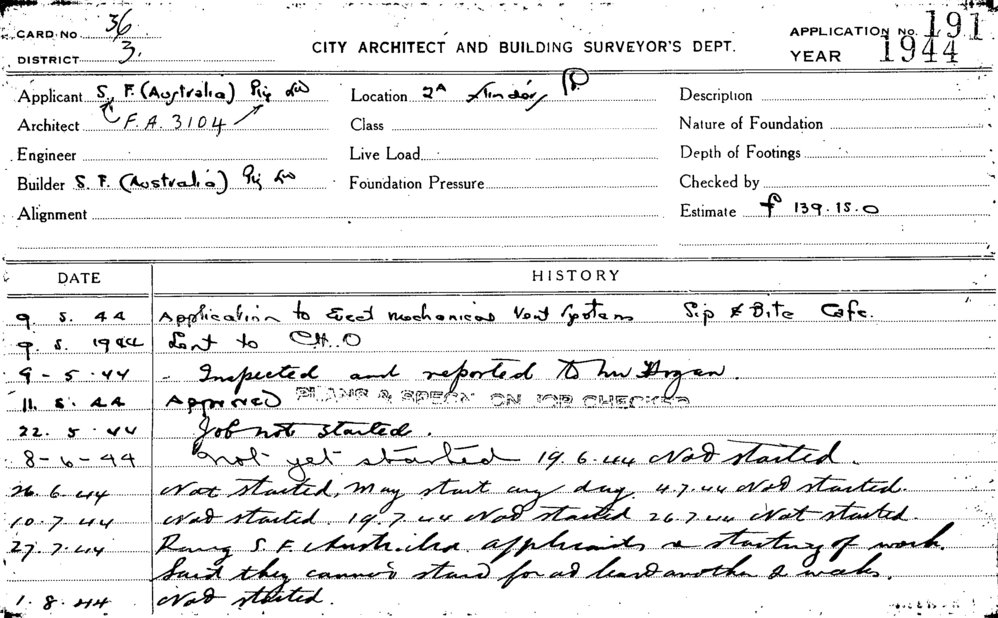 CARD NO. 36
DISTRICT 3.
CITY ARCHITECT AND BUILDING SURVEYOR'S DEPT.
APPLICATION No. 191
YEAR 1944
Applicant S. F. (Australia) Pty Ltd
Location 2A Flinders
Description
Architect F.A. 3104
Class
Nature of Foundation
Engineer
Live Load
Depth of Footings
Builder S. F. (Australia) Pty Ltd
Foundation Pressure
Checked by
Alignment
Estimate £ 139.15.0
DATE HISTORY
9 5. 44 Application to Erect mechanical Vent Systems Sip & Bite Cafe.
9. 5. 1944 Sent to C.H.O
9-5-44 - Inspected and reported to Mr Hogan.
11. 5. 44 Approved PLANS & SPECN ON JOB CHECKED
22. 5. 44 Job not started.
8-6-44 Not yet started 19.6.44 Not started.
26.6.44 Not started, may start any day. 4.7.44 Not started.
10.7.44 Not started. 19.7.44 Not started 26.7.44 Not started.
27.7.44 Rang S. F. Australia applicants re starting of work.
Said they cannot start for at least another 2 weeks.
1.8.44 Not started.